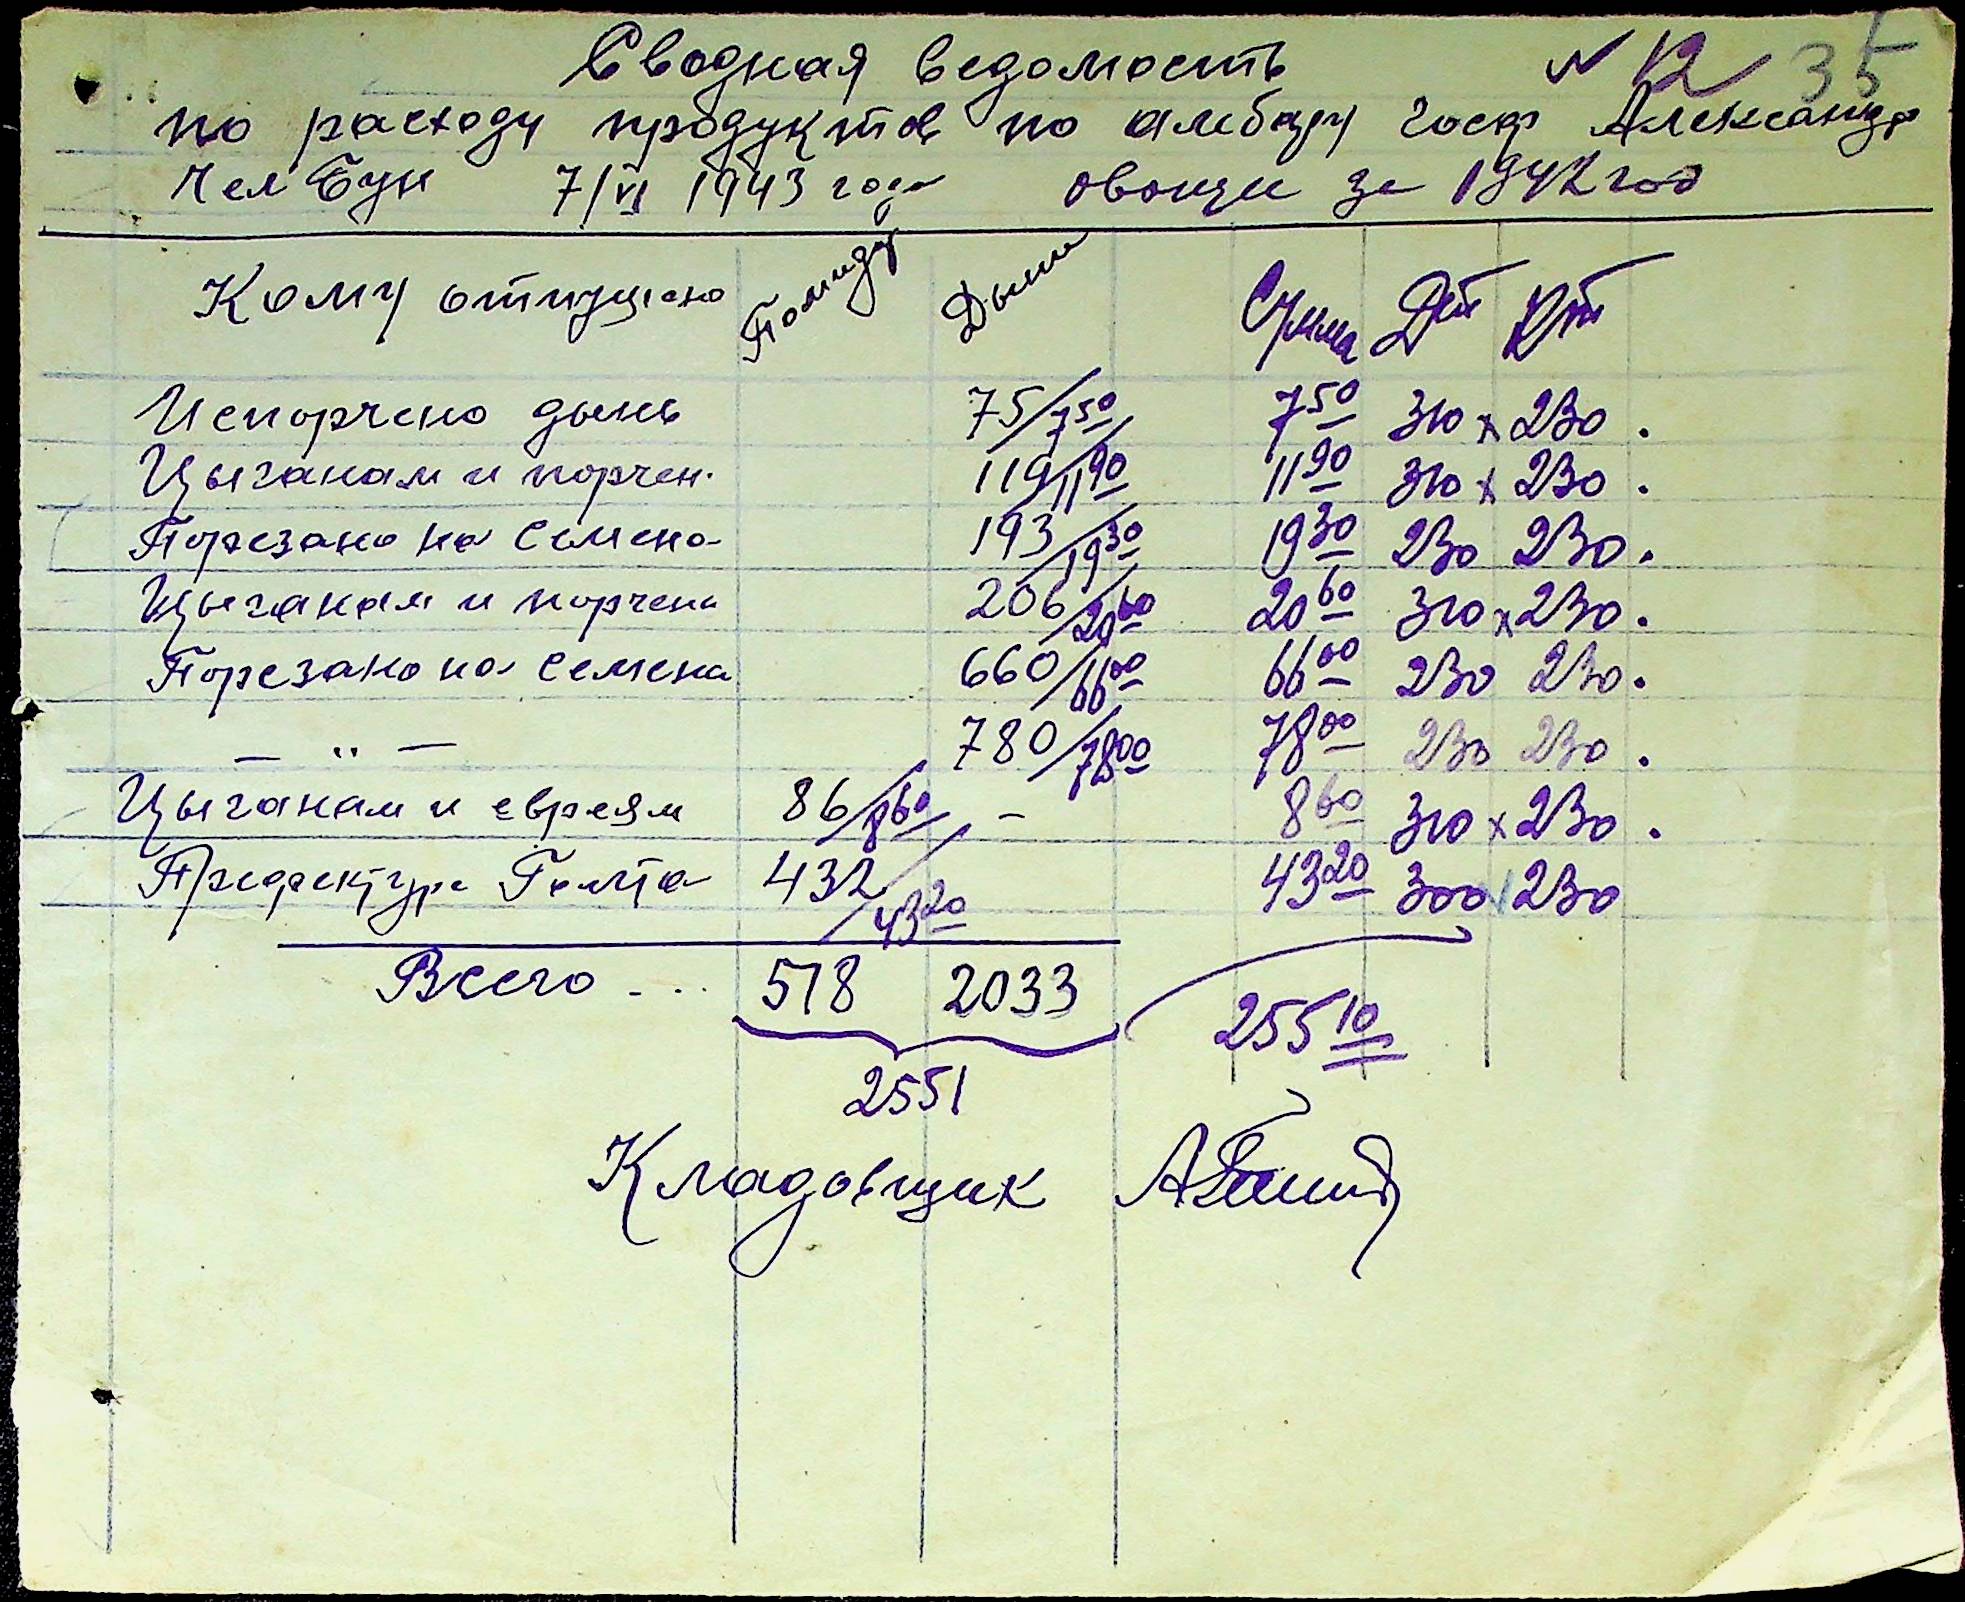 Сводная ведомость № 12 35
по расходу продуктов по амбару госф Александр
Чел Бун 7/VI 1943 года овощи за 1942 год
Кому отпущено Помидор Дыни Сумма Дт Кт
Испорчено дынь 75/7 50 7 50 310 x 230 .
Цыганам и порчен. 119/11 90 11 90 310 x 230 .
Порезано на семена 193/19 30 19 30 230 230 .
Цыганам и порчени 206/20 60 20 60 310 x 230 .
Порезано на семена 660/66 00 66 00 230 230 .
— " — 780/78 00 78 00 230 230 .
Цыганам и евреям 86/8 60 — 8 60 310 x 230 .
Префектуре Голта 432/43 20 43 20 300 230
Всего - ... 518 2033 255 10
2551
Кладовщик